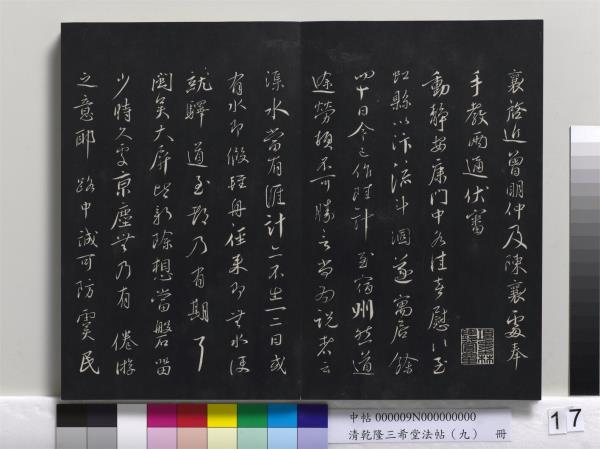 襄啓近曾明仲及陳襄處奉
手教兩通伏審
動靜安康門中各佳喜慰〻至
虹縣以汴流斗涸遂寓居餘
四十日今已作陸計至宿州然道
途勞頓不可勝言尚爲說者云
渠水當有涯計亦不出一二日或
有水即假輕舟徑來即無水便
就驛道至都乃有期了
聞吳大屏皆新除想當磐留
少時久處京塵無乃有倦游
之意耶路中誠可防虞民
中帖 000009N000000000
清乾隆三希堂法帖（九） 冊
17